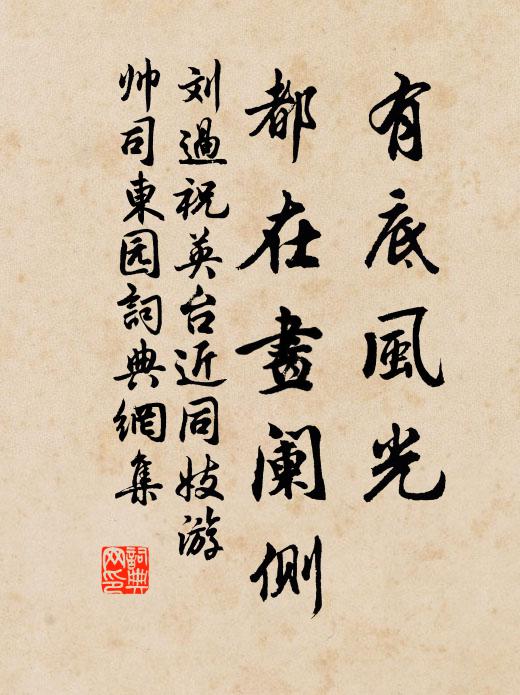 有底風光
都在畫阑側
刘過祝英台近同妓游
帅司東园詞典網集
詞典网印